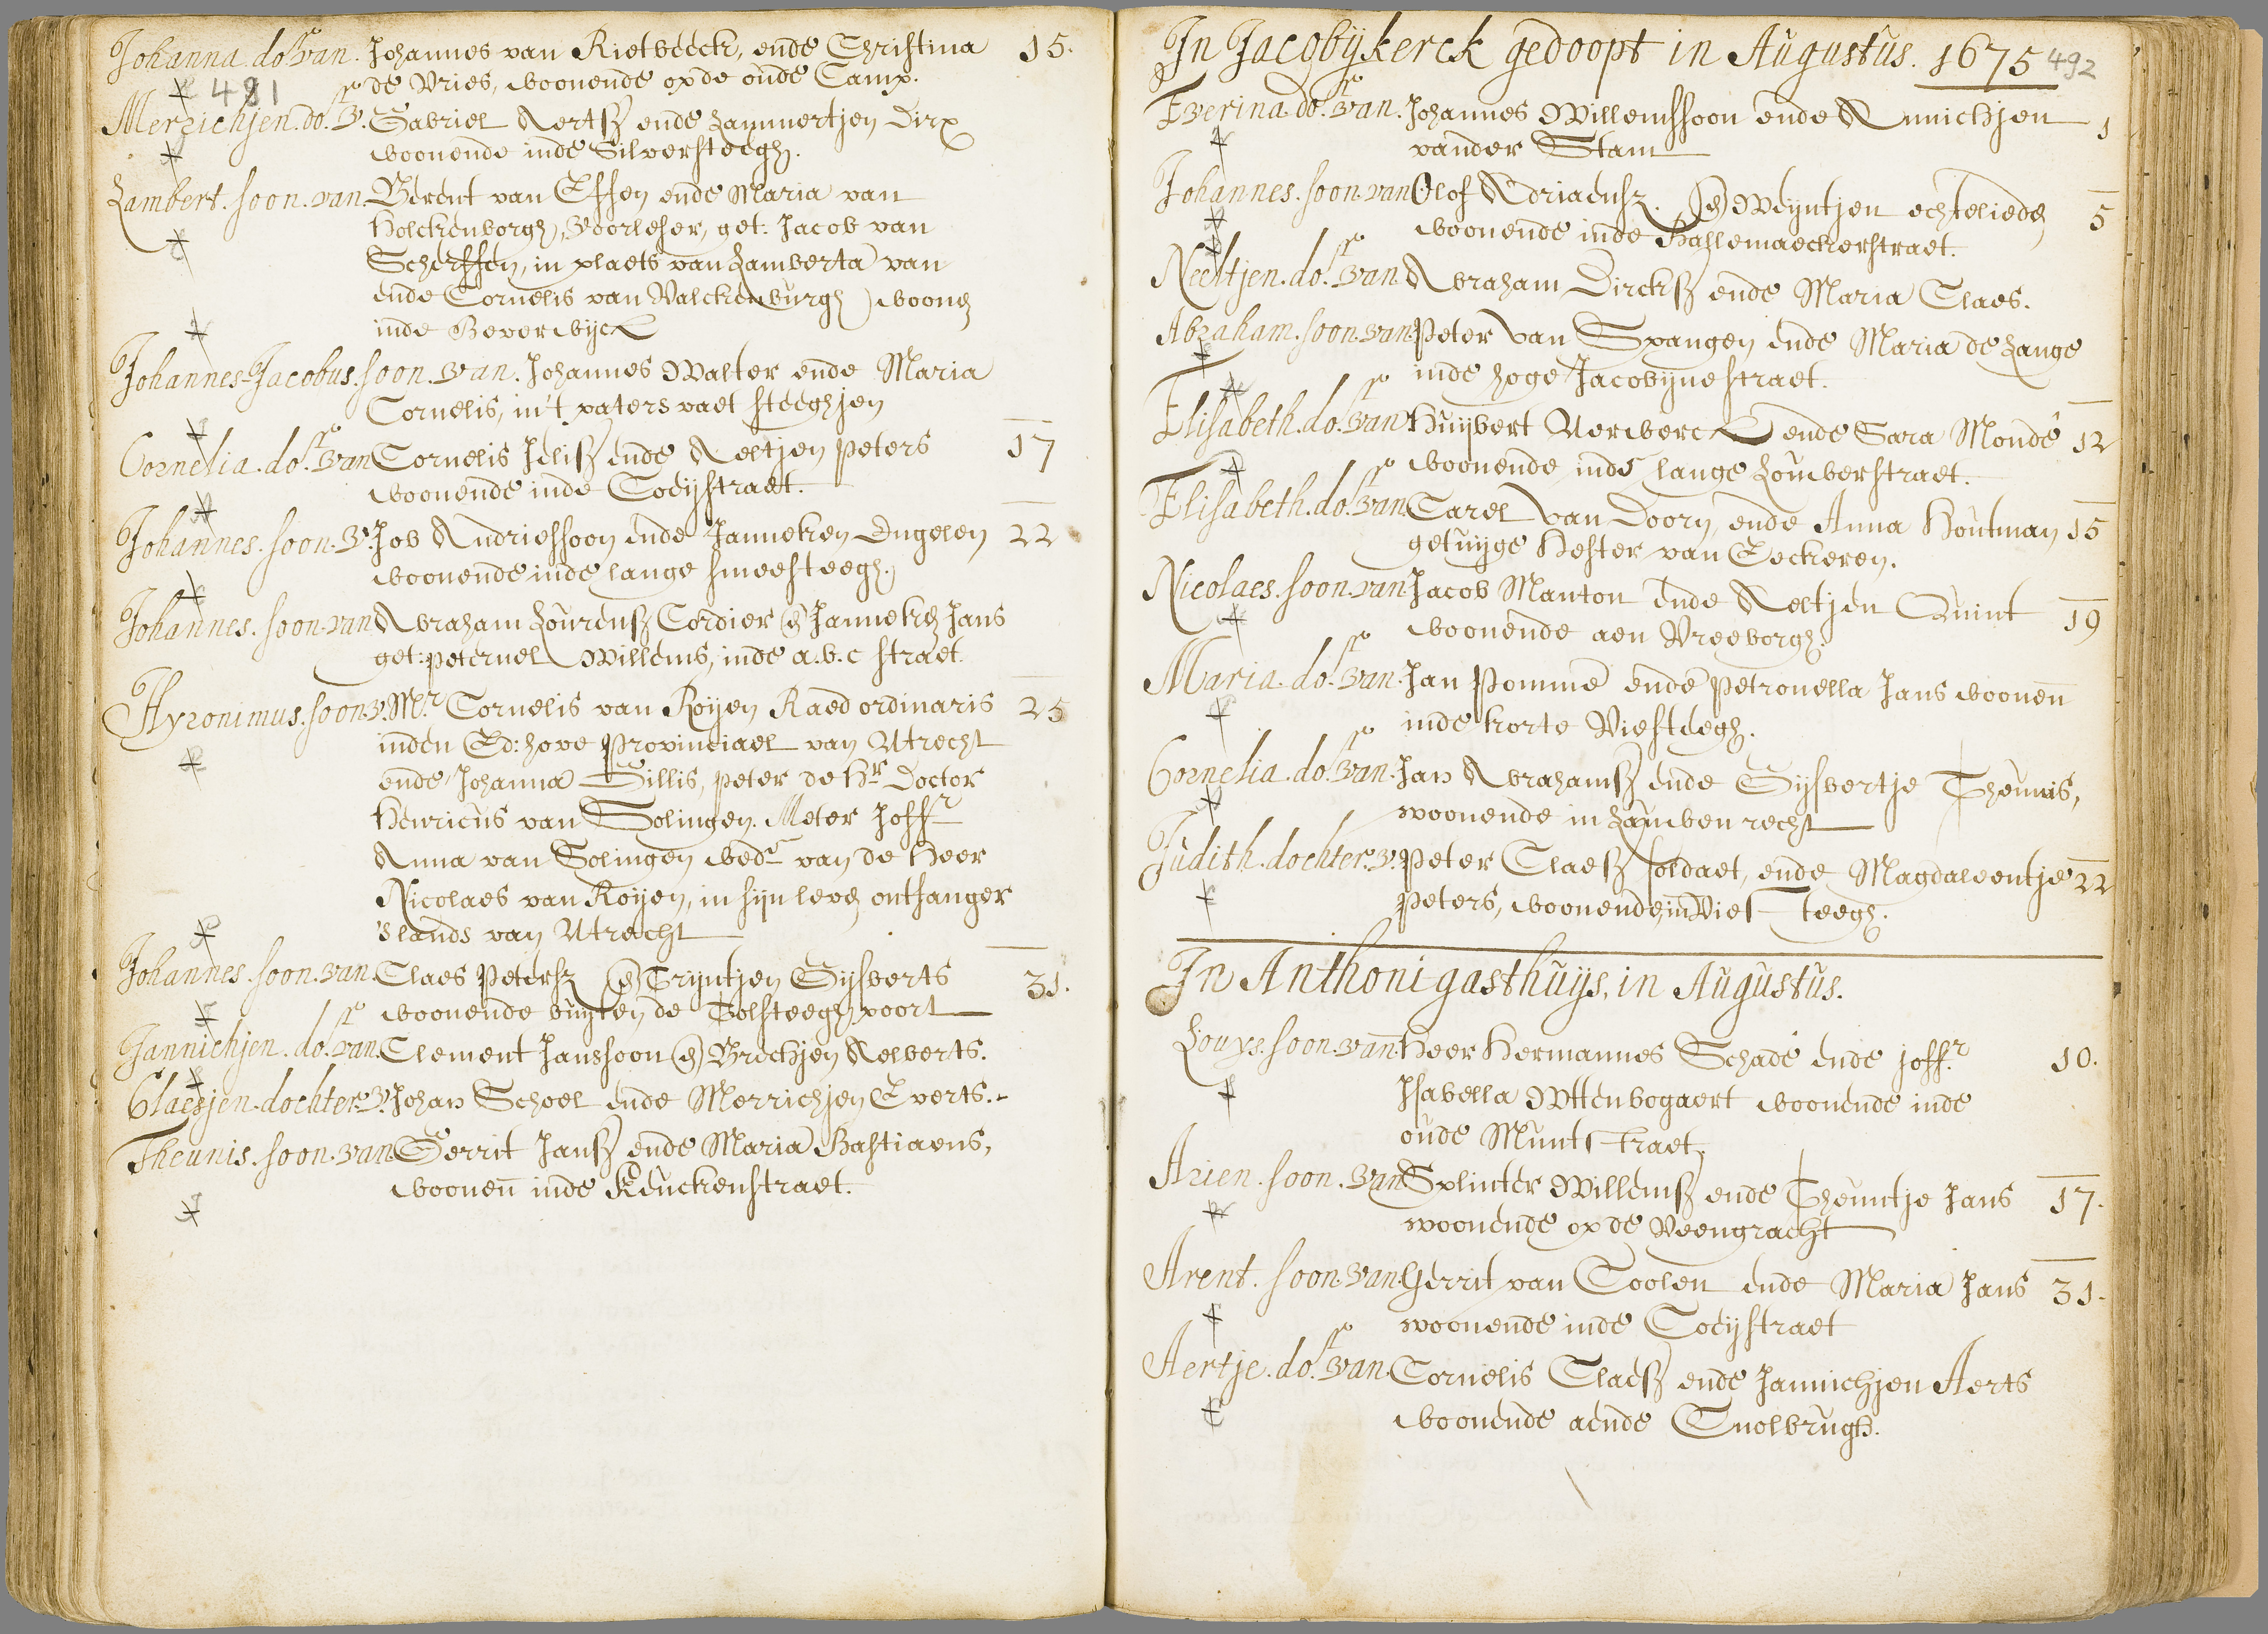 Johanna. dor. van. Johannes van Rietbeeck, ende Christina 15.
481 de Vries, woonende opde oude Camp.
Merrichjen. dor. v. Gabriel Aertsz ende Lammertjen Dirx
woonende inde Silversteegh.
Lambert. soon. van. Berent van Essen ende Maria van
Holckenborgh, Voorleser, get: Jacob van
Scherffen, in plaets van Lamberta van
ende Cornelis van Valckenburgh) woonende
inde Beverwijck
Johannes-Jacobus. soon. van. Johannes Walter ende Maria
Cornelis, in't paters vaet steeghjen
Cornelia. dor. van Cornelis Jelisz ende Aeltjen Peters 17
woonende inde Coeijstraet.
Johannes. soon. v. Job Andriessoon ende Janneken Engelen 22
woonende inde lange smeesteegh.
Johannes. soon. van Abraham Lourensz Cordier en Janneken Jans
get: peternel Willems, inde a.b.c straet.
Hyronimus. soon. v. Mr. Cornelis van Royen Raed ordinaris 25
inden Ed: hove Provinciael van Utrecht
ende Johanna Gillis, peter de Hr. Doctor
Henricus van Solingen. Meter Joffr
Anna van Solingen wedr. van de Heer
Nicolaes van Royen, in sijn leven ontfanger
's lands van Utrecht
Johannes. soon. van. Claes Petersz en Trijntjen Gijsberts 31.
woonende buijten de Tolsteegh poort
Jannichjen. dor. van. Clement Janssoon en Brechjen Aelberts.
Claesjen. dochter. v. Johan Schoel ende Merrichjen Everts.
Theunis. soon. van Gerrit Jansz ende Maria Bastiaens,
woonen inde Keuckenstraet.
In Jacobijkerck gedoopt in Augustus. 1675 492
Everina. dor. van. Johannes Willemssoon ende Annichjen 1
vander Stam
Johannes. soon. van Olof Adriaensz. en Weyntjen echtelieden 5
woonende inde Hasslemaeckerstraet.
Neeltjen. dor. van Abraham Dircksz ende Maria Claes.
Abraham. soon. van Peter van Spangen ende Maria de Lange
inde hoge Jacobijnestraet.
Elisabeth. dor. van Huijbert Verwerck ende Sara Monde 12
woonende inde lange Louwerstraet.
Elisabeth. dor. van Carel van Doorn, ende Anna Houtman 15
getuijge Hester van Eeckeren.
Nicolaes. soon. van Jacob Manton ende Aeltjen Quint 19
woonende aen Vreeborgh.
Maria. dor. van. Jan Pomme ende Petronella Jans woonen
inde korte Viesteegh.
Cornelia. dor. van. Jan Abrahamsz ende Gijsbertje Theunis,
woonende in Lauwenrecht
Judith. dochter. v. Peter Claesz soldaet, ende Magdaleentje 22
Peters, woonende, in Viesteegh.
In Anthoni gasthuijs, in Augustus.
Louys. soon. van Heer Hermannes Schade ende joffr. 10.
Isabella Wttenbogaert woonende inde
oude Muntstraet.
Arien. soon. van Splinter Willemsz ende Theuntje Jans 17.
woonende op de Veengracht
Arent. soon. van Gerrit van Coolen ende Maria Jans 31.
woonende inde Coeijstraet
Aertje. dor. van. Cornelis Claesz ende Jannichjen Aerts
woonende aende Tnolbrugh.